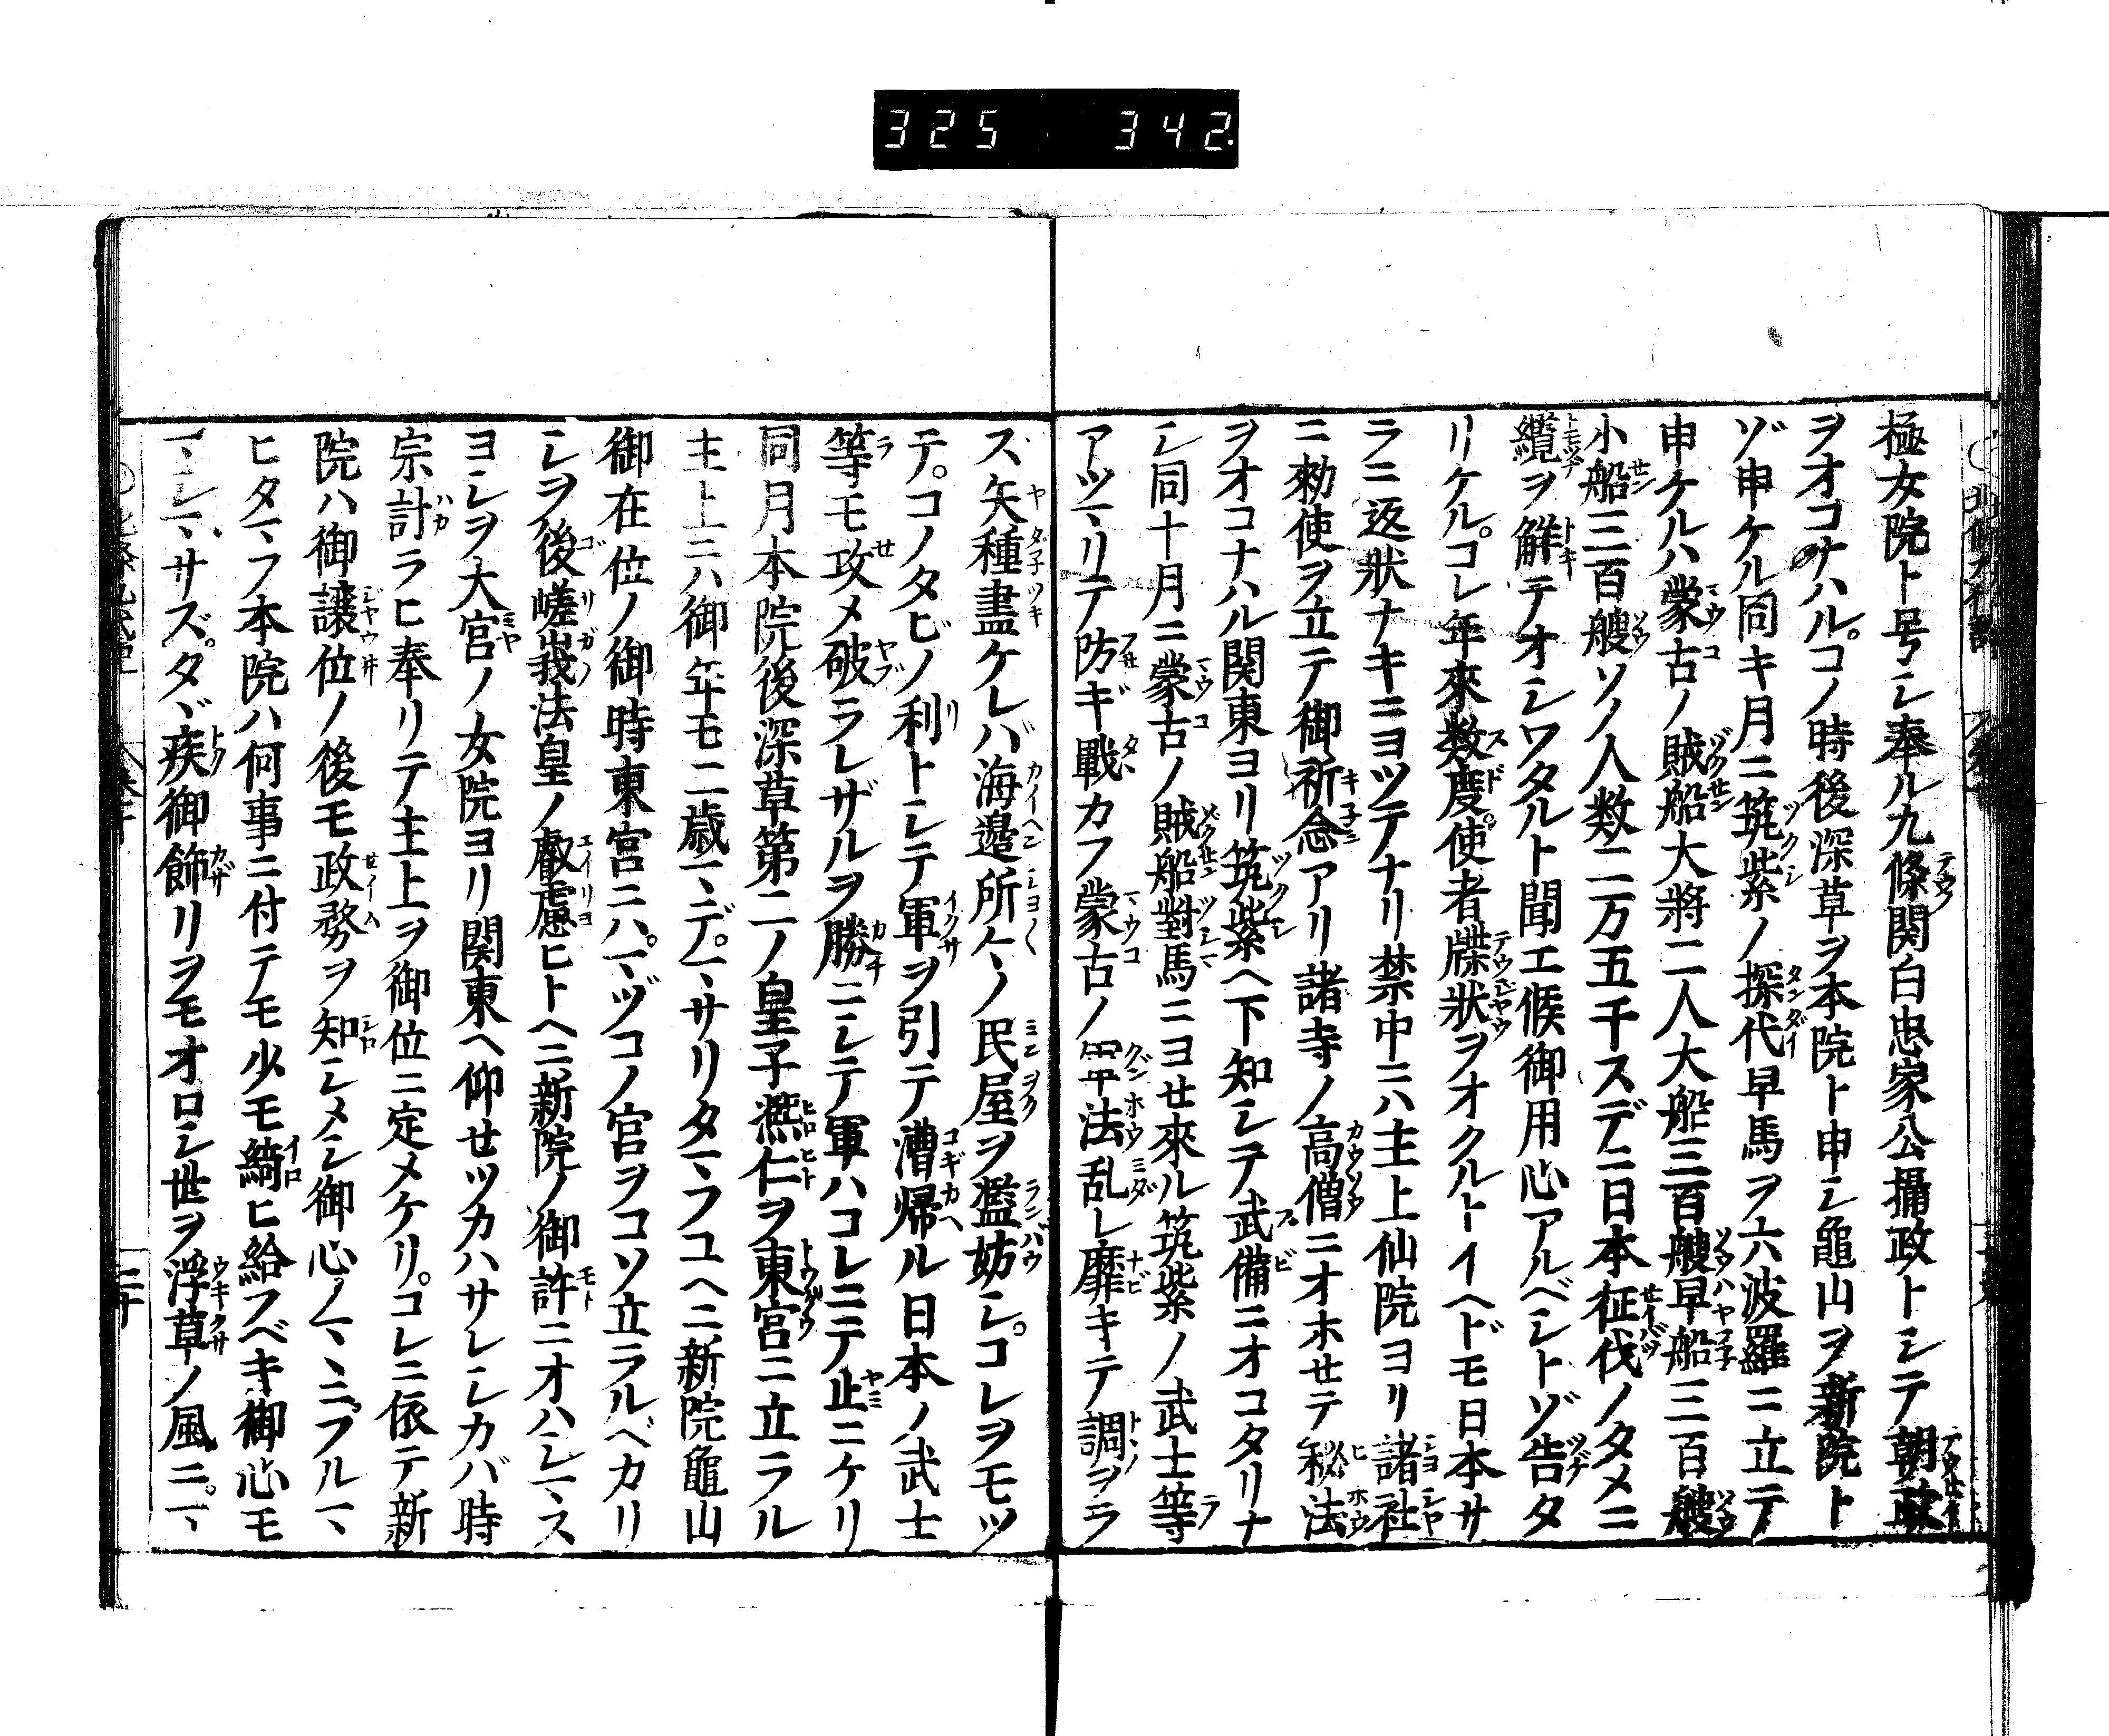 325 342.
極女院ト号シ奉ル九條関白忠家公攝政トシテ朝政
ヲオコナハル。コノ時後深草ヲ本院ト申シ龜山ヲ新院ト
ゾ申ケル同キ月ニ筑紫ノ探代早馬ヲ六波羅ニ立テ
申ケルハ蒙古ノ賊船大將二人大船三百艘早船三百艘
小船三百艘ソノ人数二万五千スデニ日本征伐ノタメニ
纜ヲ解テオシワタルト聞エ候御用心アルベシトゾ告タ
リケル。コレ年來数度使者牒狀ヲオクルトイヘドモ日本サ
ラニ返狀ナキニヨツテナリ禁中ニハ主上仙院ヨリ諸社
ニ勅使ヲ立テ御祈念アリ諸寺ノ高僧ニオホセテ秘法
ヲオコナハル関東ヨリ筑紫ヘ下知シテ武備ニオコタリナ
シ同十月ニ蒙古ノ賊船對馬ニヨセ來ル筑紫ノ武士等
アツマリテ防ギ戰カフ蒙古ノ軍法乱レ靡キテ調ヲラ
ス矢種盡ケレバ海邉所々ノ民屋ヲ濫妨シ。コレヲモツ
テ。コノタビノ利トシテ軍ヲ引テ漕帰ル日本ノ武士
等モ攻メ破ラレザルヲ勝ニシテ軍ハコレニテ止ニケリ
同月本院後深草第二ノ皇子熈仁ヲ東宮ニ立ラル
主上ニハ御年モ二歳マデ。マサリタマフユヘニ新院龜山
御在位ノ御時東宮ニハ。マヅコノ宮ヲコソ立ラルベカリ
シヲ後嵯峩法皇ノ叡慮ヒトヘニ新院ノ御許ニオハシマス
ヨシヲ大宮ノ女院ヨリ関東ヘ仰セツカハサレシカバ時
宗計ラヒ奉リテ主上ヲ御位ニ定メケリ。コレニ依テ新
院ハ御譲位ノ後モ政務ヲ知シメシ御心ノマヽニフルマ
ヒタマフ本院ハ何事ニ付テモ少モ綺ヒ給フベキ御心モ
マシマサズ。タヾ疾御飾リヲモオロシ世ヲ浮草ノ風ニ。マ